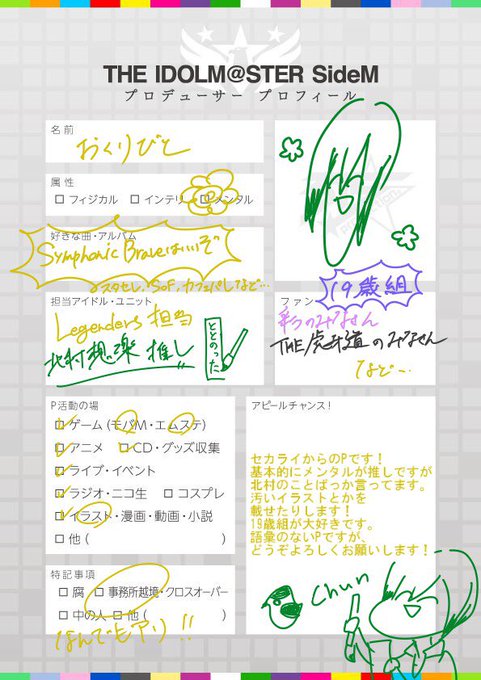 THE IDOLM@STER SideM
プロデューサー プロフィール
名前
おくりびと
属性
□ フィジカル □ インテリ □ メンタル
好きな曲・アルバム
Symphonic Braveはいいぞ
スタセレ、SoF、カフェパレなど…
担当アイドル・ユニット
Legenders 担当
北村想楽 推し
ととのった
19歳組
ファン
彩のみなさん
THE 虎牙道のみなさん
など…
P活動の場
□ ゲーム (モバM・エムステ)
□ アニメ □ CD・グッズ収集
□ ライブ・イベント
□ ラジオ・ニコ生 □ コスプレ
□ イラスト・漫画・動画・小説
□ 他 ( )
特記事項
□ 腐 □ 事務所越境・クロスオーバー
□ 中の人 □ 他 ( )
なんでもアリ!!
アピールチャンス!
セカライからのPです!
基本的にメンタルが推しですが
北村のことばっか言ってます。
汚いイラストとかを
載せたりします!
19歳組が大好きです。
語彙のないPですが、
どうぞよろしくお願いします!
Chun